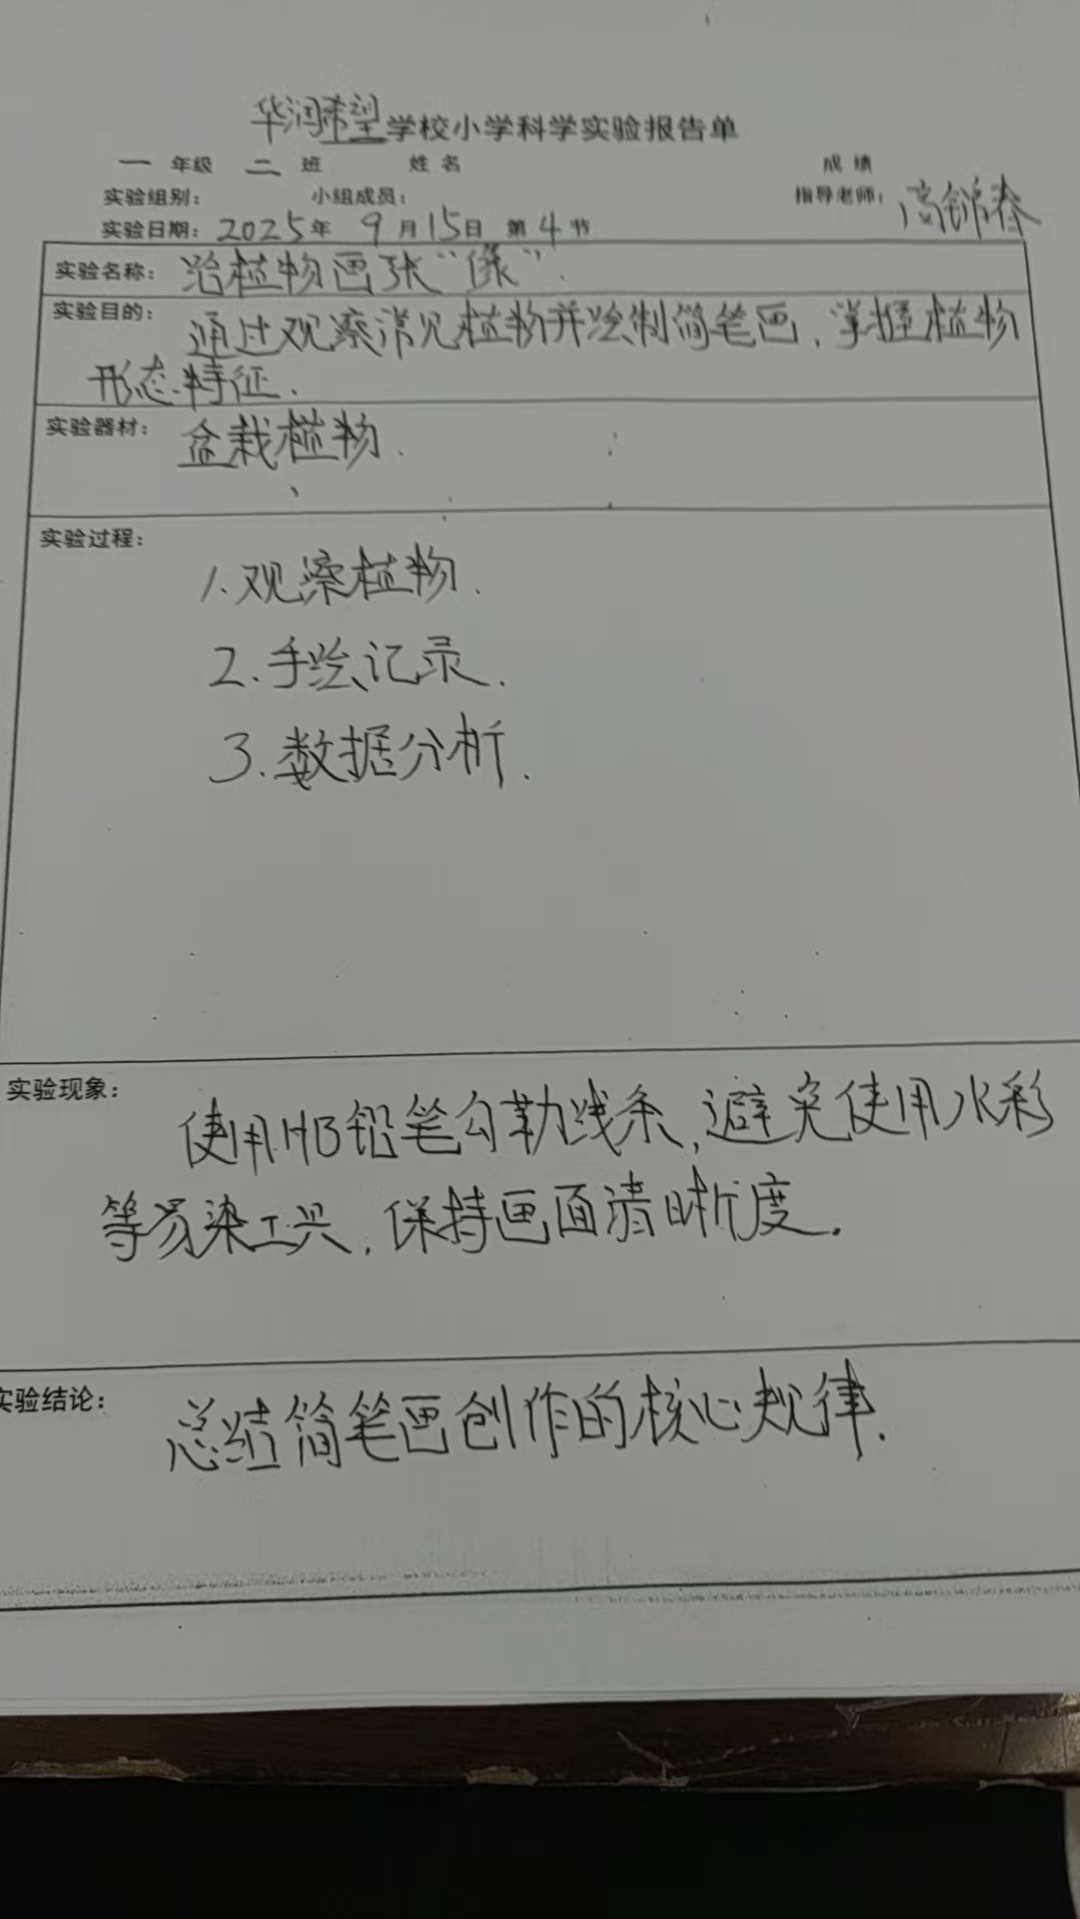 华润希望学校小学科学实验报告单
一 年级 二 班 姓名 成绩
实验组别: 小组成员: 指导老师: 高锦春
实验日期: 2025年 9月15日 第4节
实验名称: 给植物画张“像”.
实验目的: 通过观察常见植物并绘制简笔画,掌握植物
形态特征.
实验器材: 盆栽植物.
实验过程:
1.观察植物.
2.手绘记录.
3.数据分析.
实验现象:
使用HB铅笔勾勒线条,避免使用水彩
等易染工具,保持画面清晰度.
实验结论:
总结简笔画创作的核心规律.